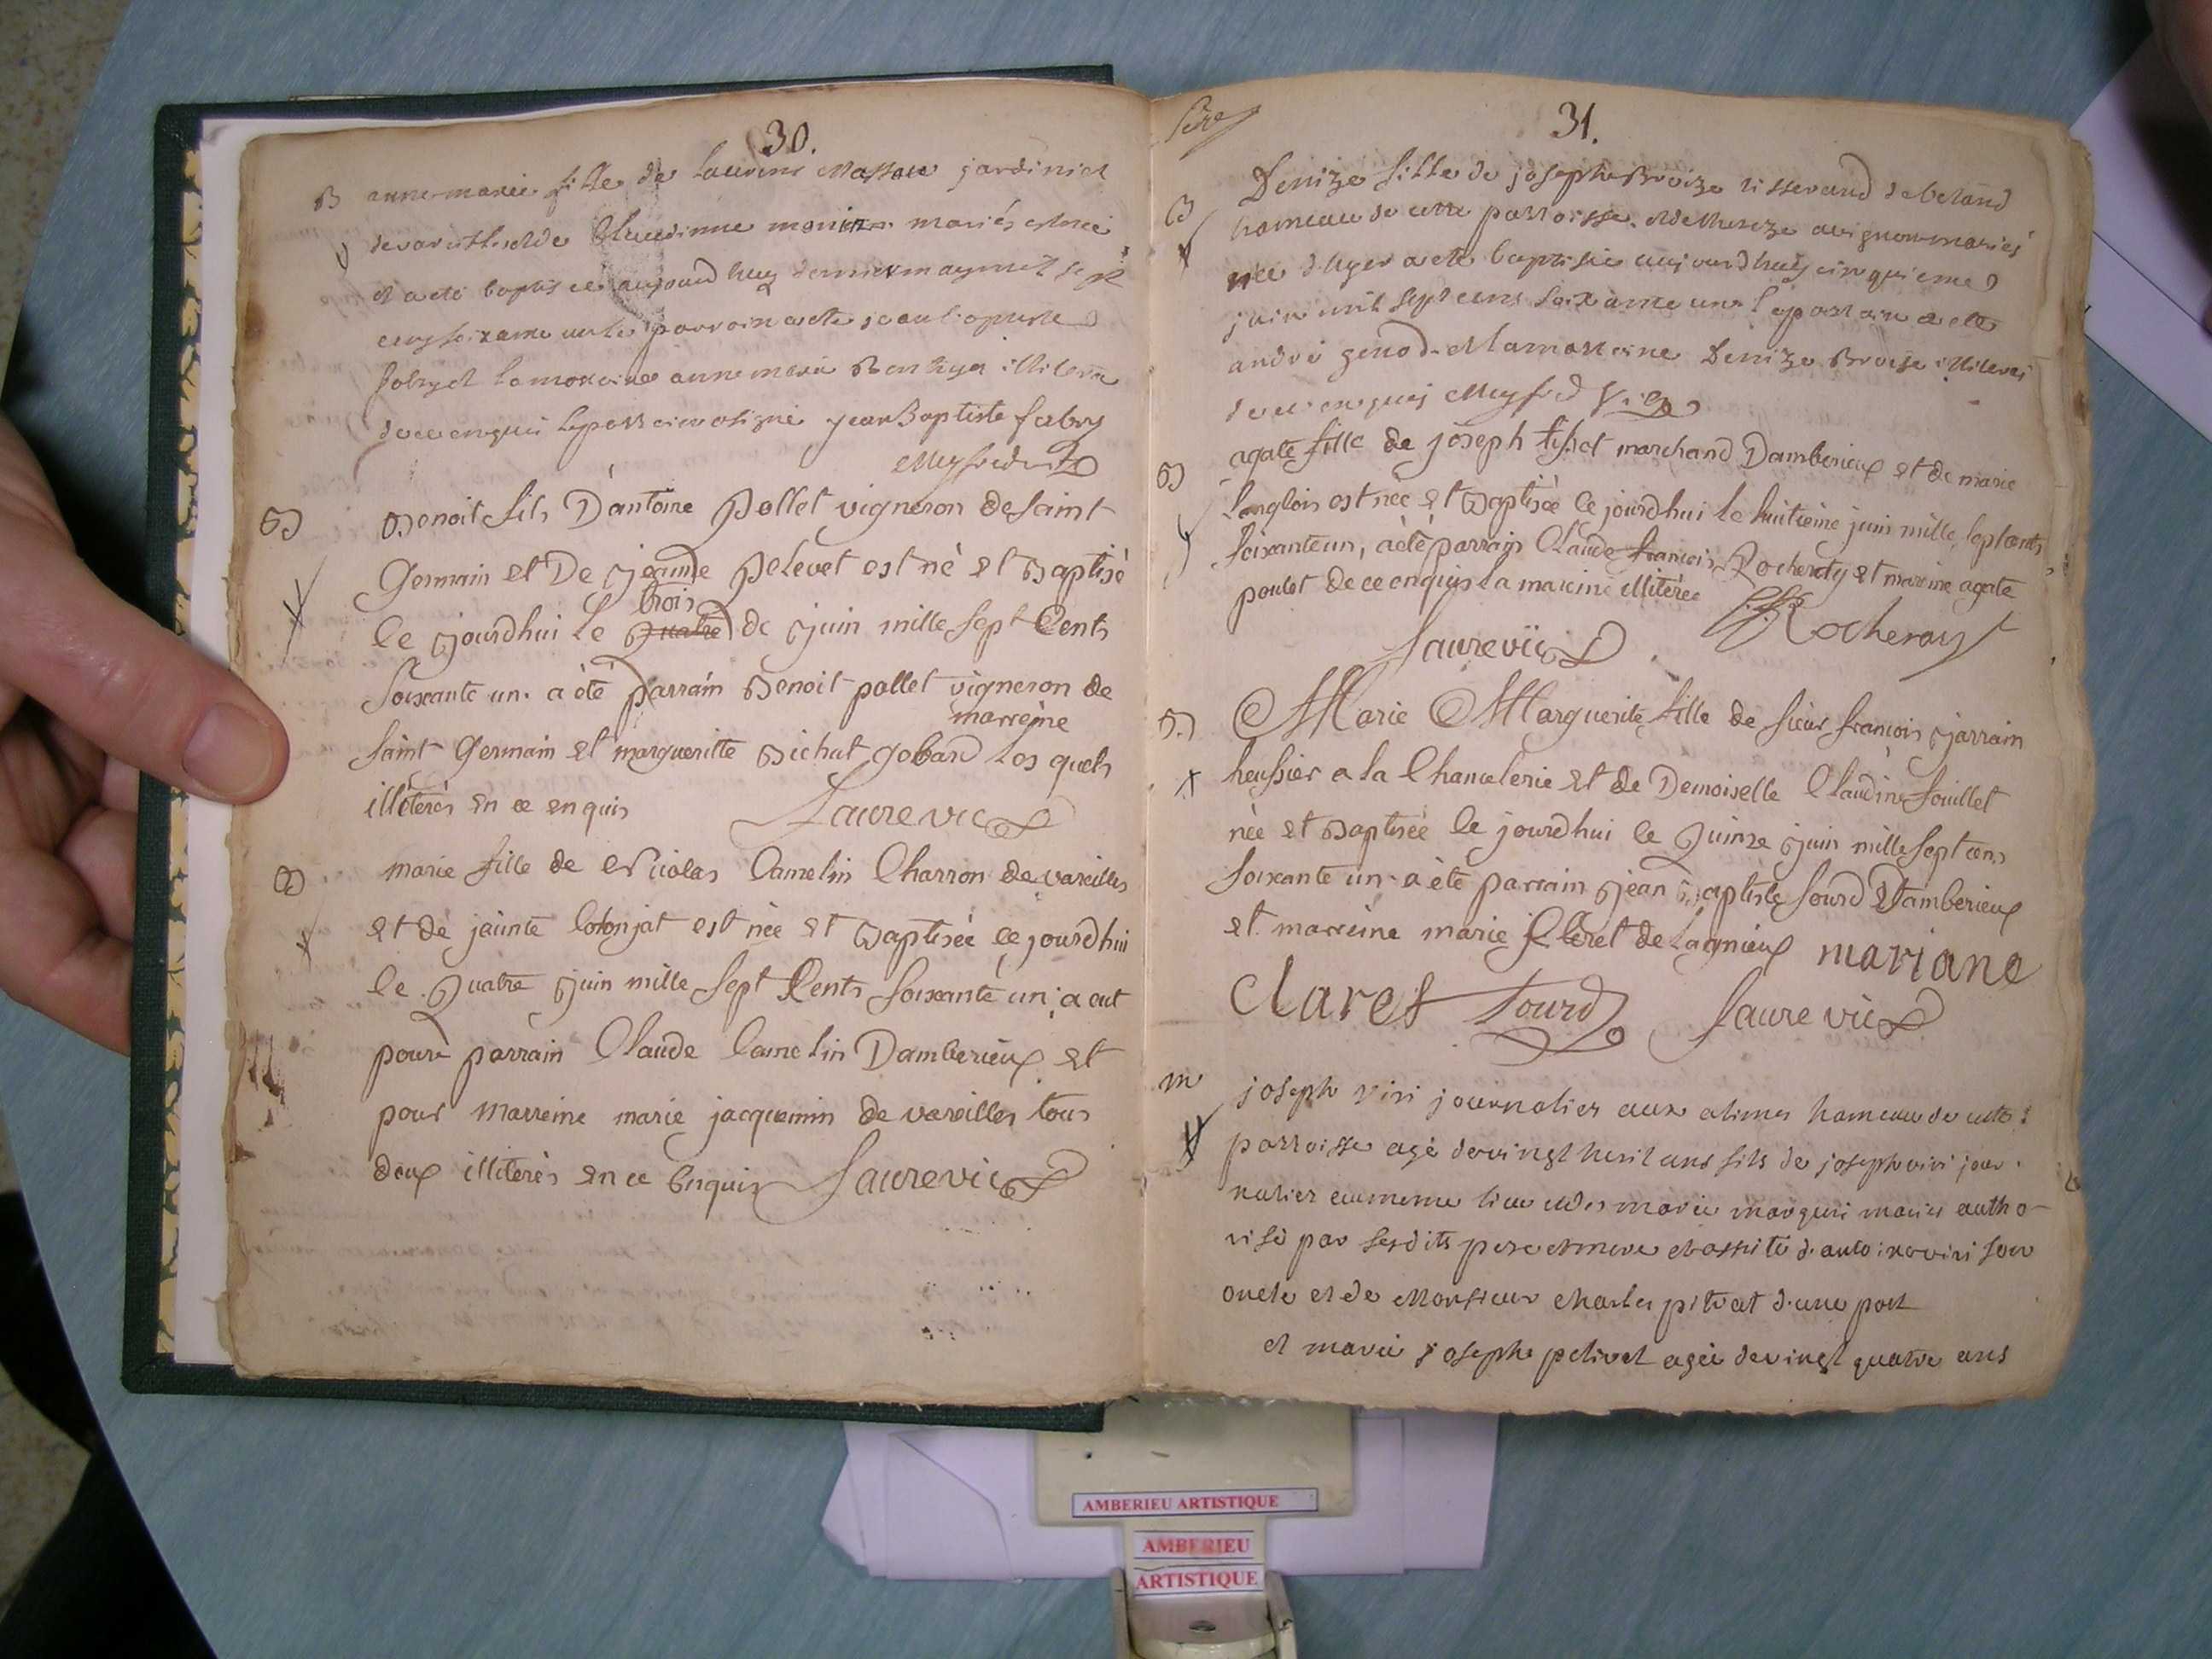 30.
B anne marie fille de laurens jardinier
de vareilles et de Claudinne mariés est née
et a eté baptisée aujourd huy dernier may mil sept
cens soixante un le parrain a eté jean baptiste
fabry et la marraine anne marie illiterée
de ce enquis le parrain a signé jean Baptiste fabry
Meyfred vic
B Benoit fils D'antoine Pollet vigneron de saint
Germain et De jeanne Pelevet est né et Baptisé
ce jourdhui le quatre trois de juin mille sept Cents
soixante un. a été parrain Benoit pollet vigneron de
saint Germain et margueritte Bichat gobard marreine les quels
illiterés en ce enquis Saurevic
B marie fille de Nicolas Camelin Charron de vareilles
et de jainte est née et Baptisée ce jourdhui
le quatre juin mille sept Cents soixante un, a eut
pour parrain Claude Camelin Damberieux et
pour marreine marie jacquemin de vareilles tous
deux illiterés en ce Enquis Saurevic
31.
B Denize fille de joseph Broize tisserand
hameau de cette parroisse et de thereze avignon mariés
née d'hyer a eté baptisée aujourdhuy cinquieme
juin mil sept cens soixante un le parrain a eté
andré genod et la marraine Denize Broize illiterés
de ce enquis Meyfred Vic
B agate fille de joseph tisset marchand Damberieux et de marie
Langlois est née et Baptisée ce jourdhui le huitieme juin mille sept cents
soixante un, a été parrain Claude francois Rocheraty et marrine agate
poulet de ce enquis la mareine illiterée
Rocheray
Saurevic
B Marie Marguerite fille de sieur françois jarrain
heussier a la Chancelerie et de Demoiselle Claudine souillet
née et Baptisée ce jourdhui le quinze juin mille sept cens
soixante un a été parrain jean Baptiste sourd Damberieux
et marreine marie Cleret de Lagnieux mariane
Claret Sourd Saurevic
m joseph viri journalier aux alimes hameau de cette
parroisse agé de vingt huit ans fils de joseph viri jour
nalier au meme lieu et de marie mariés autho
risé par sesdits pere et mere et assisté d'antoine viri son
oncle et de Monsieur charles pitrat d'une part
et marie josephe pelivet agée de vingt quatre ans
AMBERIEU ARTISTIQUE
AMBERIEU
ARTISTIQUE